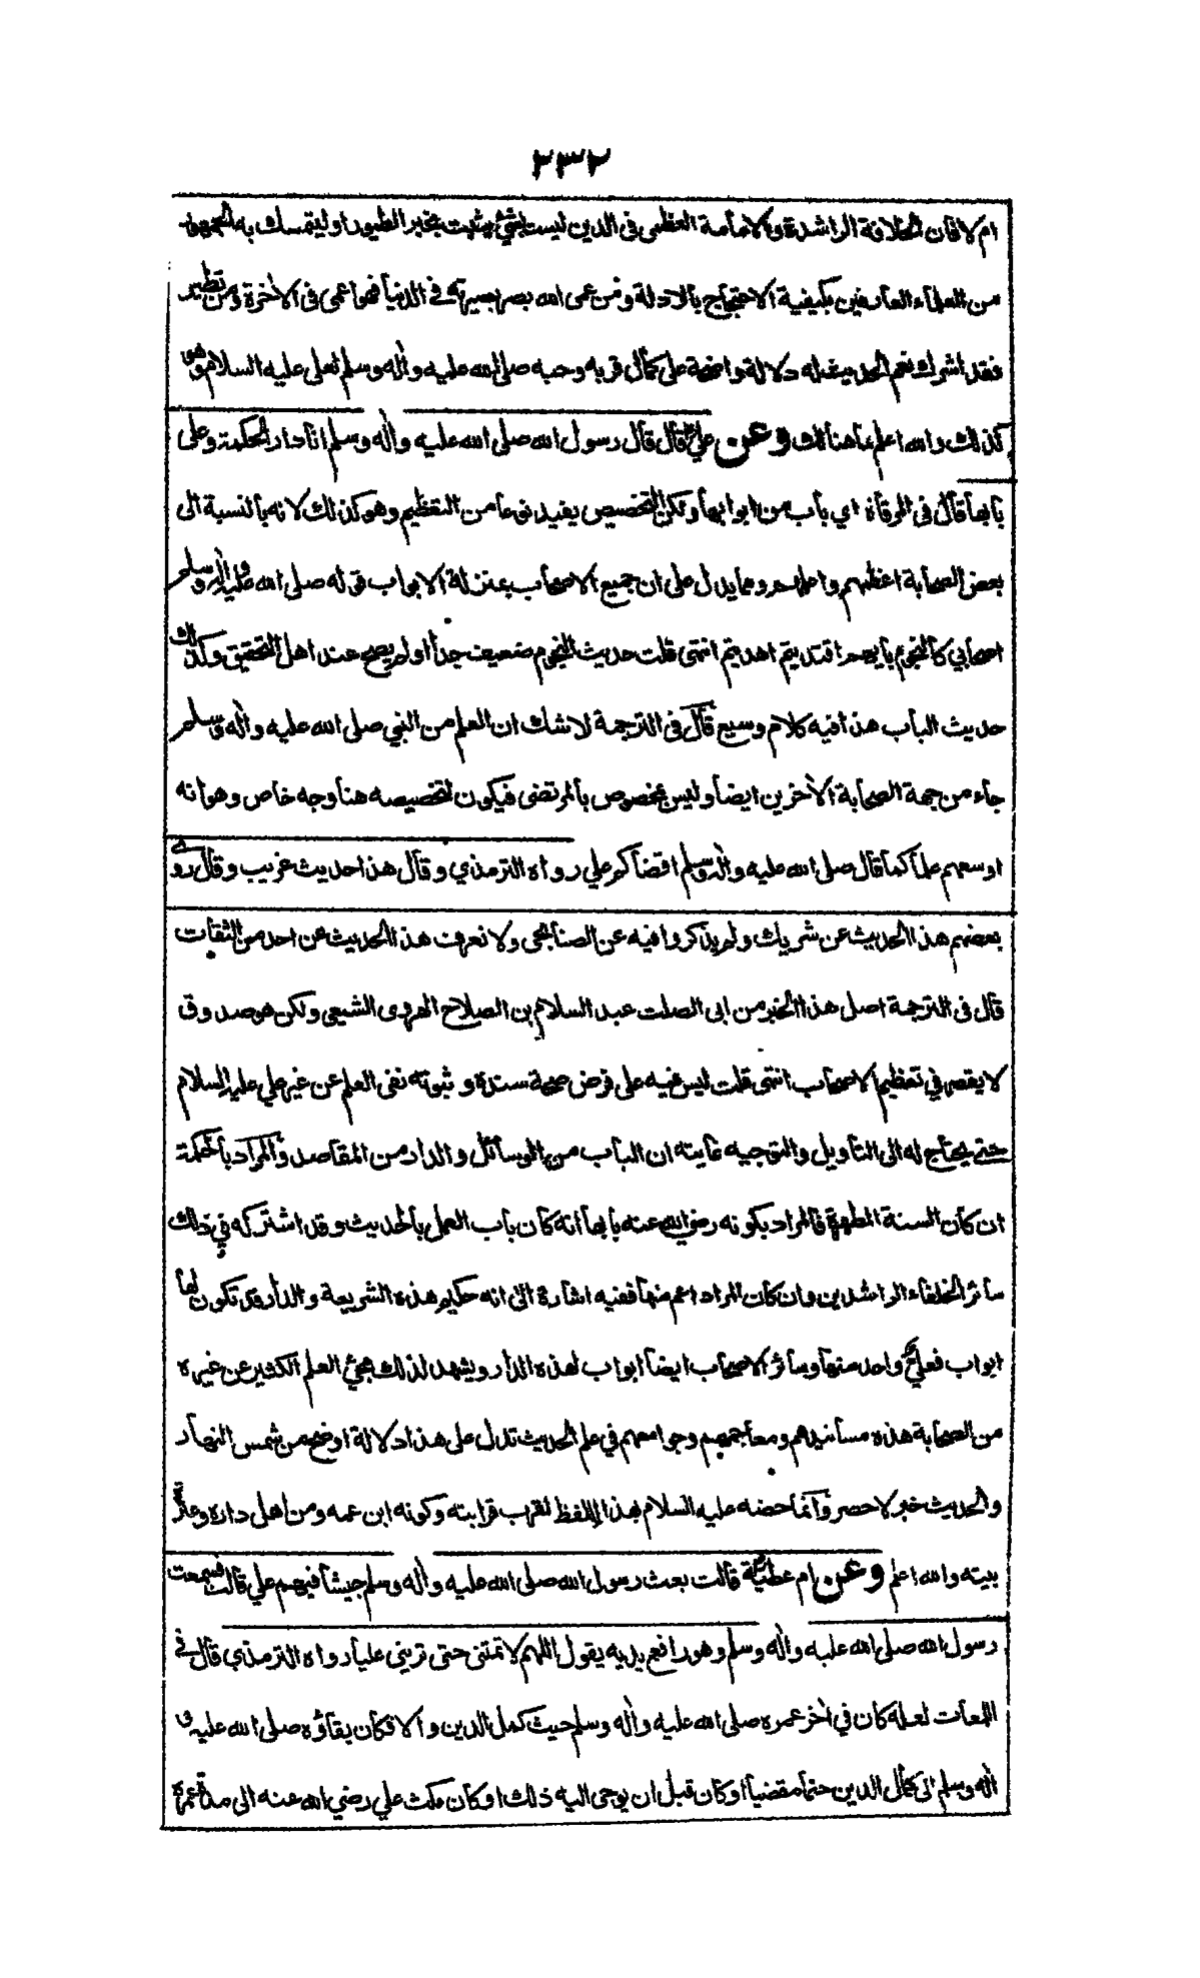 ٢٣٢
ام لا فان الخلافة الراشدة والامامة العظمى في الدين ليست بشئ يثبت بخبر الطيور او ليتمسك به
من العلماء العارفين بكيفية الاحتجاج بالادلة ومن عمى الله بصر بصيرته في الدنيا فهو اعمى في الاخرة ومن تطير
فقد اشرك نعم الحديث له دلالة واضحة على كمال قربه وحبه صلى الله عليه واٰله وسلم لعلي عليه السلام وهو
كذلك والله اعلم بما هنالك وعن علي قال قال رسول الله صلى الله عليه واٰله وسلم انا دار الحكمة وعلى
بابها قال في المرقاة اي باب من ابوابها ولكن التخصيص يفيد نوعا من التعظيم وهو كذلك لانه بالنسبة الى
بعض الصحابة اعظمهم واعلمهم ومما يدل على ان جميع الاصحاب بمنزلة الابواب قوله صلى الله عليه واٰله وسلم
اصحابي كالنجوم بايهم اقتديتم اهديتم انتهى قلت حديث النجوم ضعيف جدا او لم يصح عند اهل التحقيق وكذلك
حديث الباب هذا فيه كلام وسيع قال في الترجمة لا شك ان العلم من النبي صلى الله عليه واٰله وسلم
جاء من جهة الصحابة الاٰخرين ايضا وليس بمخصوص بالمرتضى فيكون لتخصيصه هنا وجه خاص وهو انه
اوسعهم علما كما قال صلى الله عليه واٰله وسلم اقضاكم علي رواه الترمذي وقال هذا حديث غريب وقال روى
بعضهم هذا الحديث عن شريك ولم يذكروا فيه عن الصنابحى ولا نعرف هذا الحديث عن احد من الثقات
قال في الترجمة اصل هذا الخبر من ابى الصلت عبد السلام بن الصلاح الهروى الشيعى ولكن هو صدوق
لا يقصر في تعظيم الاصحاب انتهى قلت ليس فيه على فرض صحة سنده وثبوته نفى العلم عن غير علي عليه السلام
حتى يحتاج له الى التاويل والتوجيه غايته ان الباب من الوسائل والدار من المقاصد والمراد بالحكمة
ان كان السنة المطهرة فالمراد بكونه رضي الله عنه بابها انه كان باب العمل بالحديث وقد اشتركه في ذلك
سائر الخلفاء الراشدين وان كان المراد اعم منها ففيه اشارة الى انه حكيم هذه الشريعة والدار قد تكون لها
ابواب فعلي واحد منها وسائر الاصحاب ايضا ابواب لهذه الدار ويشهد لذلك مجئ العلم الكثير عن غيره
من الصحابة هذه مسانيدهم ومعاجمهم وجوامعهم في علم الحديث تدل على هذا دلالة اوضح من شمس النهار
والحديث خبر لا حصر وانما خصه عليه السلام بهذا اللفظ لقرب قرابته وكونه ابن عمه ومن اهل داره
بيته والله اعلم وعن ام عطية قالت بعث رسول الله صلى الله عليه واٰله وسلم جيشا فيهم علي قالت فسمعت
رسول الله صلى الله عليه واٰله وسلم وهو رافع يديه يقول اللهم لا تمتنى حتى ترينى عليا رواه الترمذي قال في
اللمعات لعله كان في اٰخر عمره صلى الله عليه واٰله وسلم حيث كمل الدين والا فكان بقاؤه صلى الله عليه و
اٰله وسلم الى كمال الدين حتما مقضيا او كان قبل ان يوحى اليه ذلك او كان مكث علي رضي الله عنه الى مدة عمره